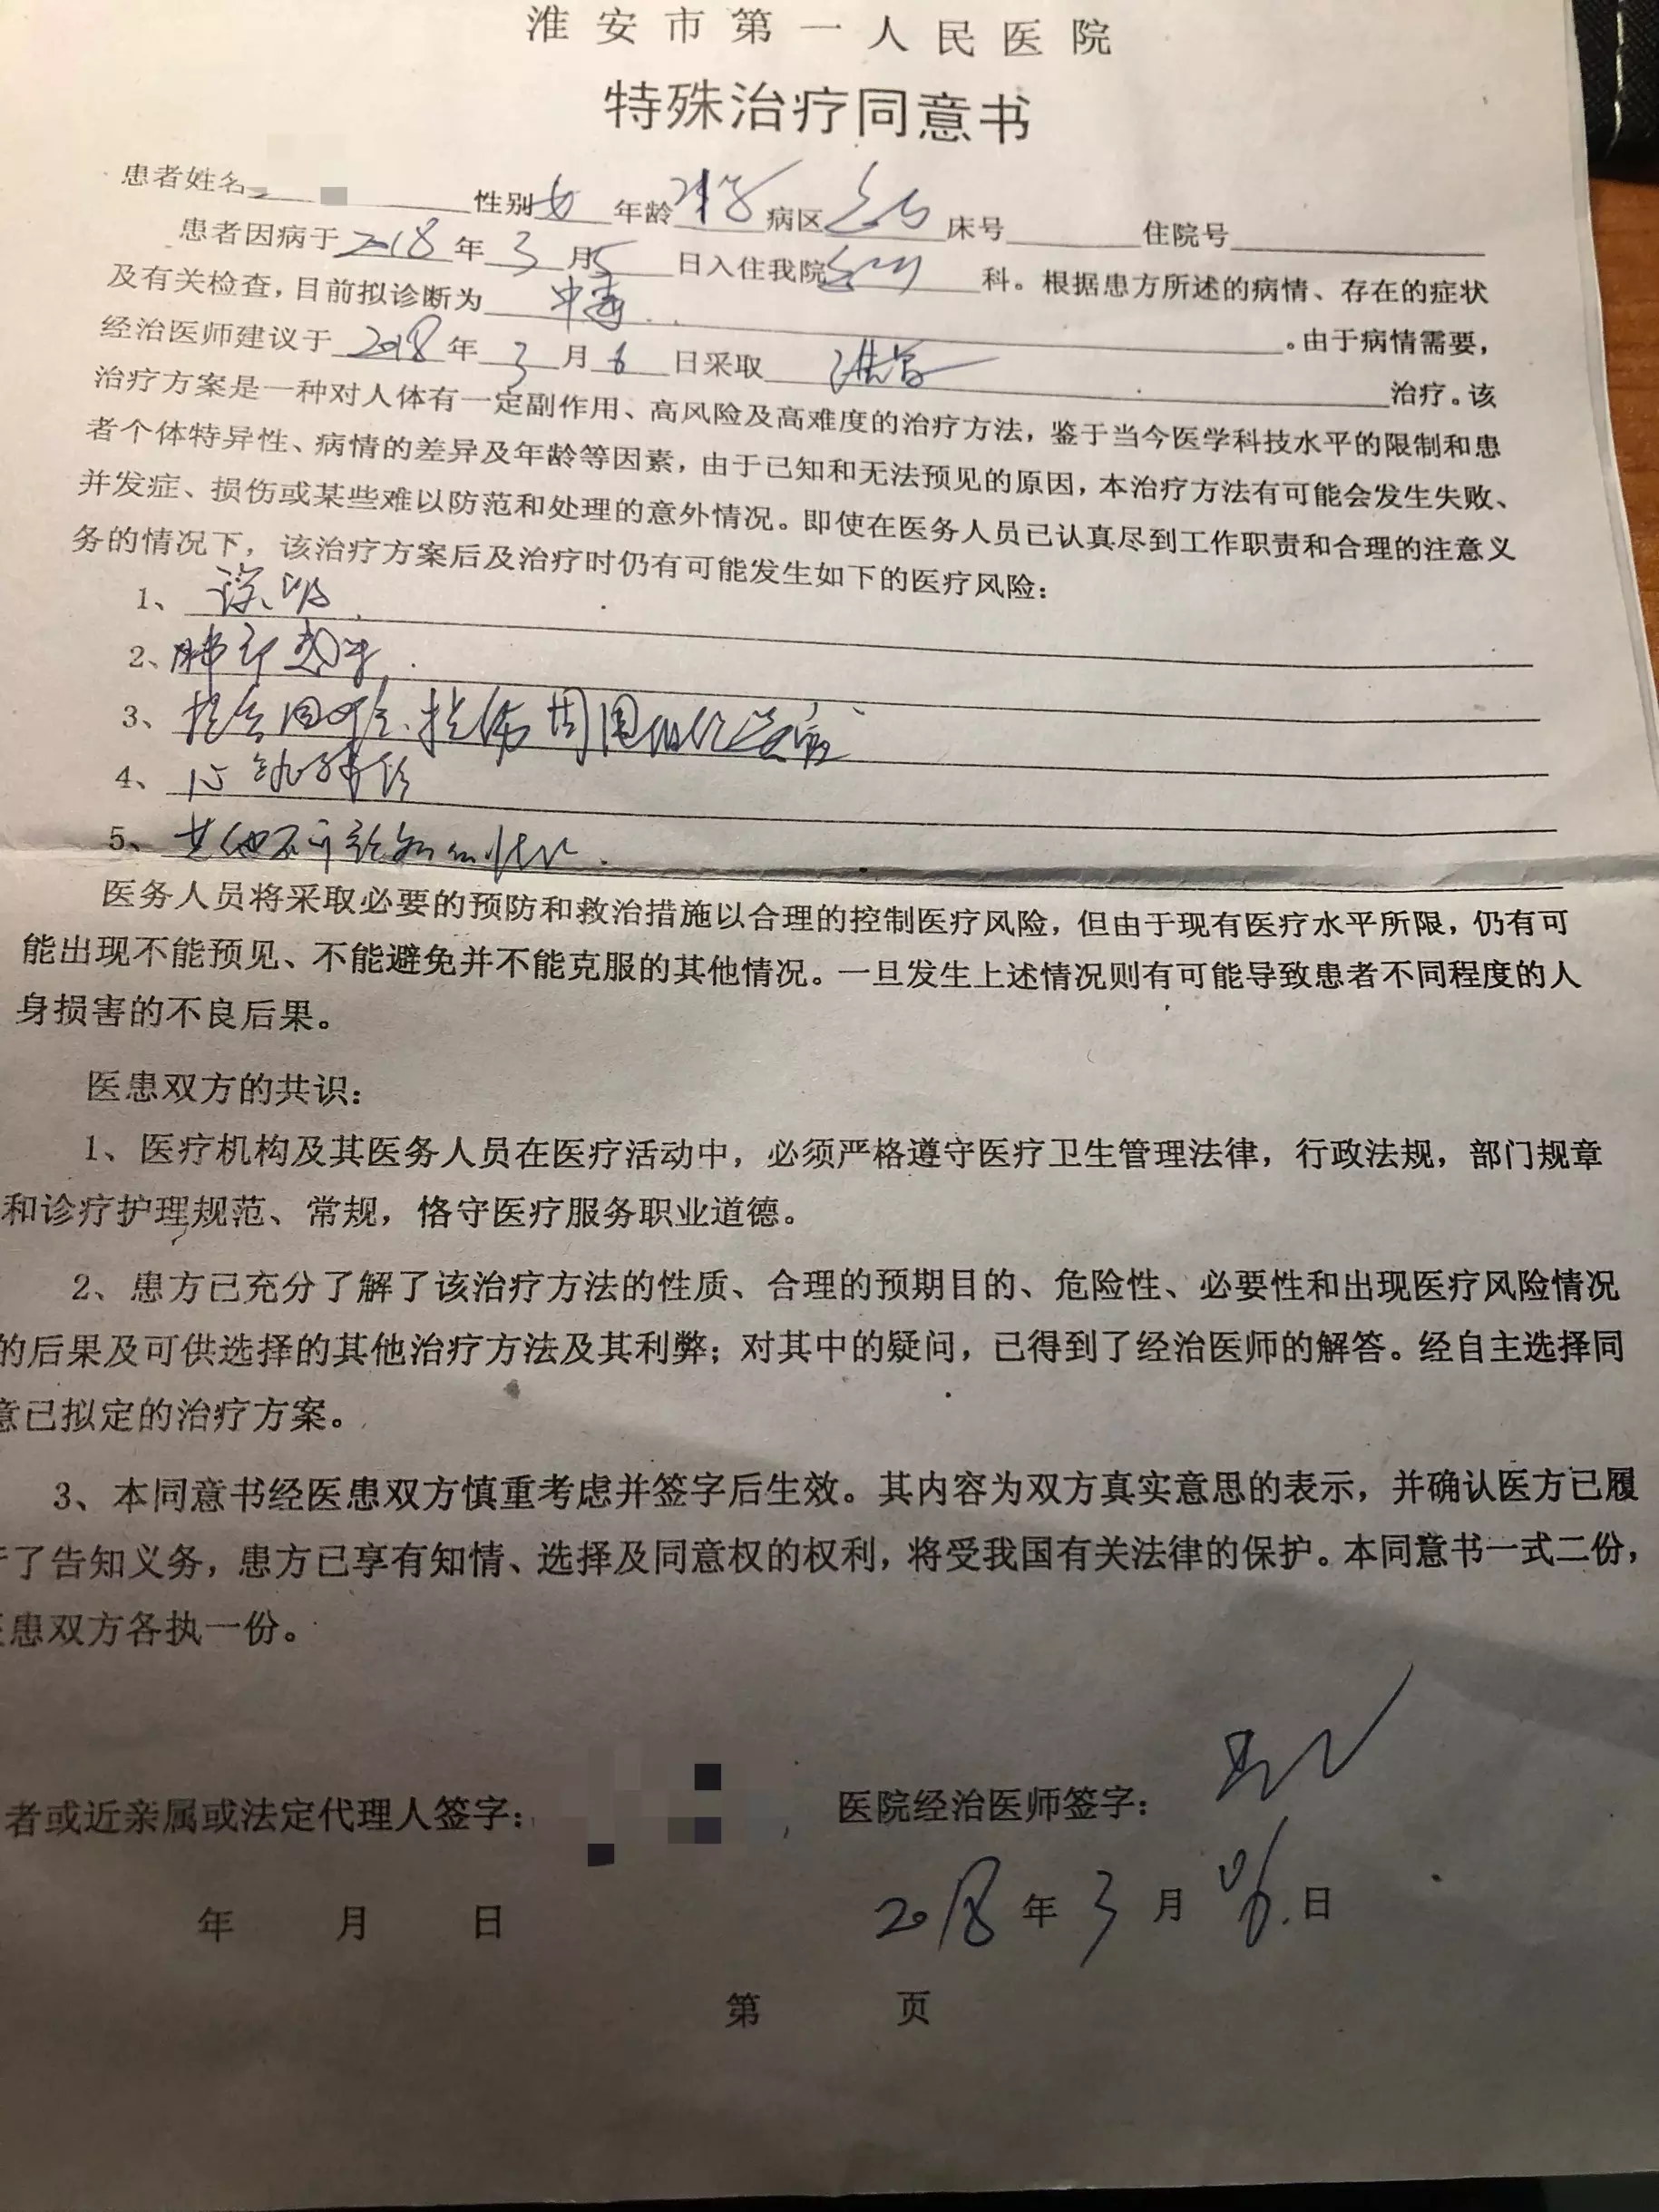 淮安市第一人民医院
特殊治疗同意书
患者姓名 性别女 年龄 病区 床号 住院号
患者因病于2018年3月5日入住我院 科。根据患方所述的病情、存在的症状
及有关检查，目前拟诊断为 中毒 。由于病情需要，
经治医师建议于2018年3月6日采取 治疗。该
治疗方案是一种对人体有一定副作用、高风险及高难度的治疗方法，鉴于当今医学科技水平的限制和患
者个体特异性、病情的差异及年龄等因素，由于已知和无法预见的原因，本治疗方法有可能会发生失败、
并发症、损伤或某些难以防范和处理的意外情况。即使在医务人员已认真尽到工作职责和合理的注意义
务的情况下，该治疗方案后及治疗时仍有可能发生如下的医疗风险：
1、误吸
2、肺部感染
3、
4、
5、其他不可预知的情况.
医务人员将采取必要的预防和救治措施以合理的控制医疗风险，但由于现有医疗水平所限，仍有可
能出现不能预见、不能避免并不能克服的其他情况。一旦发生上述情况则有可能导致患者不同程度的人
身损害的不良后果。
医患双方的共识：
1、医疗机构及其医务人员在医疗活动中，必须严格遵守医疗卫生管理法律，行政法规，部门规章
和诊疗护理规范、常规，恪守医疗服务职业道德。
2、患方已充分了解了该治疗方法的性质、合理的预期目的、危险性、必要性和出现医疗风险情况
的后果及可供选择的其他治疗方法及其利弊；对其中的疑问，已得到了经治医师的解答。经自主选择同
意已拟定的治疗方案。
3、本同意书经医患双方慎重考虑并签字后生效。其内容为双方真实意思的表示，并确认医方已履
行了告知义务，患方已享有知情、选择及同意权的权利，将受我国有关法律的保护。本同意书一式二份，
医患双方各执一份。
者或近亲属或法定代理人签字： 医院经治医师签字：
年 月 日 2018年3月 日
第 页